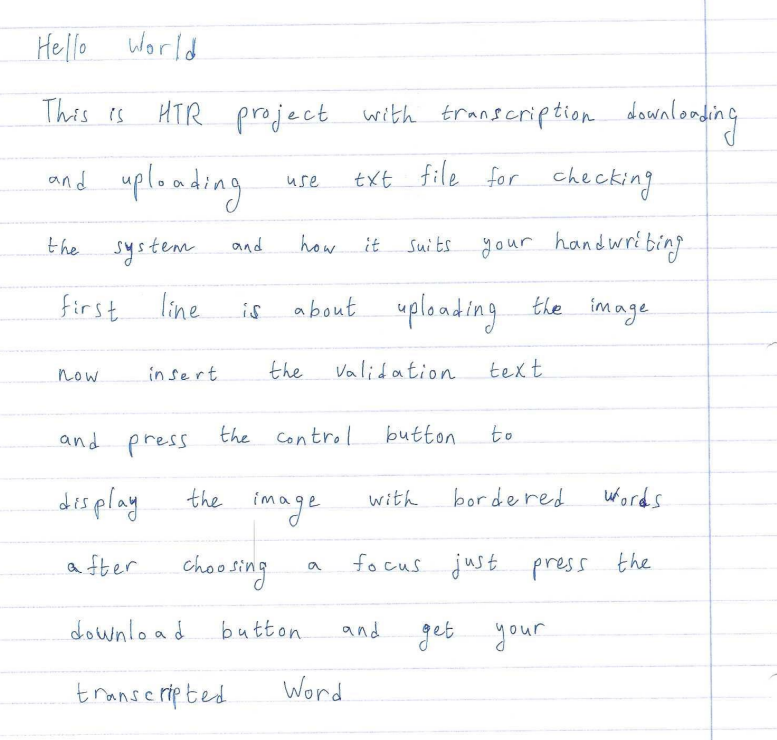 Hello World
This is HTR project with transcription downloading
and uploading use txt file for checking
the system and how it suits your handwriting
first line is about uploading the image
now insert the validation text
and press the control button to
display the image with bordered words
after choosing a focus just press the
download button and get your
transcripted Word